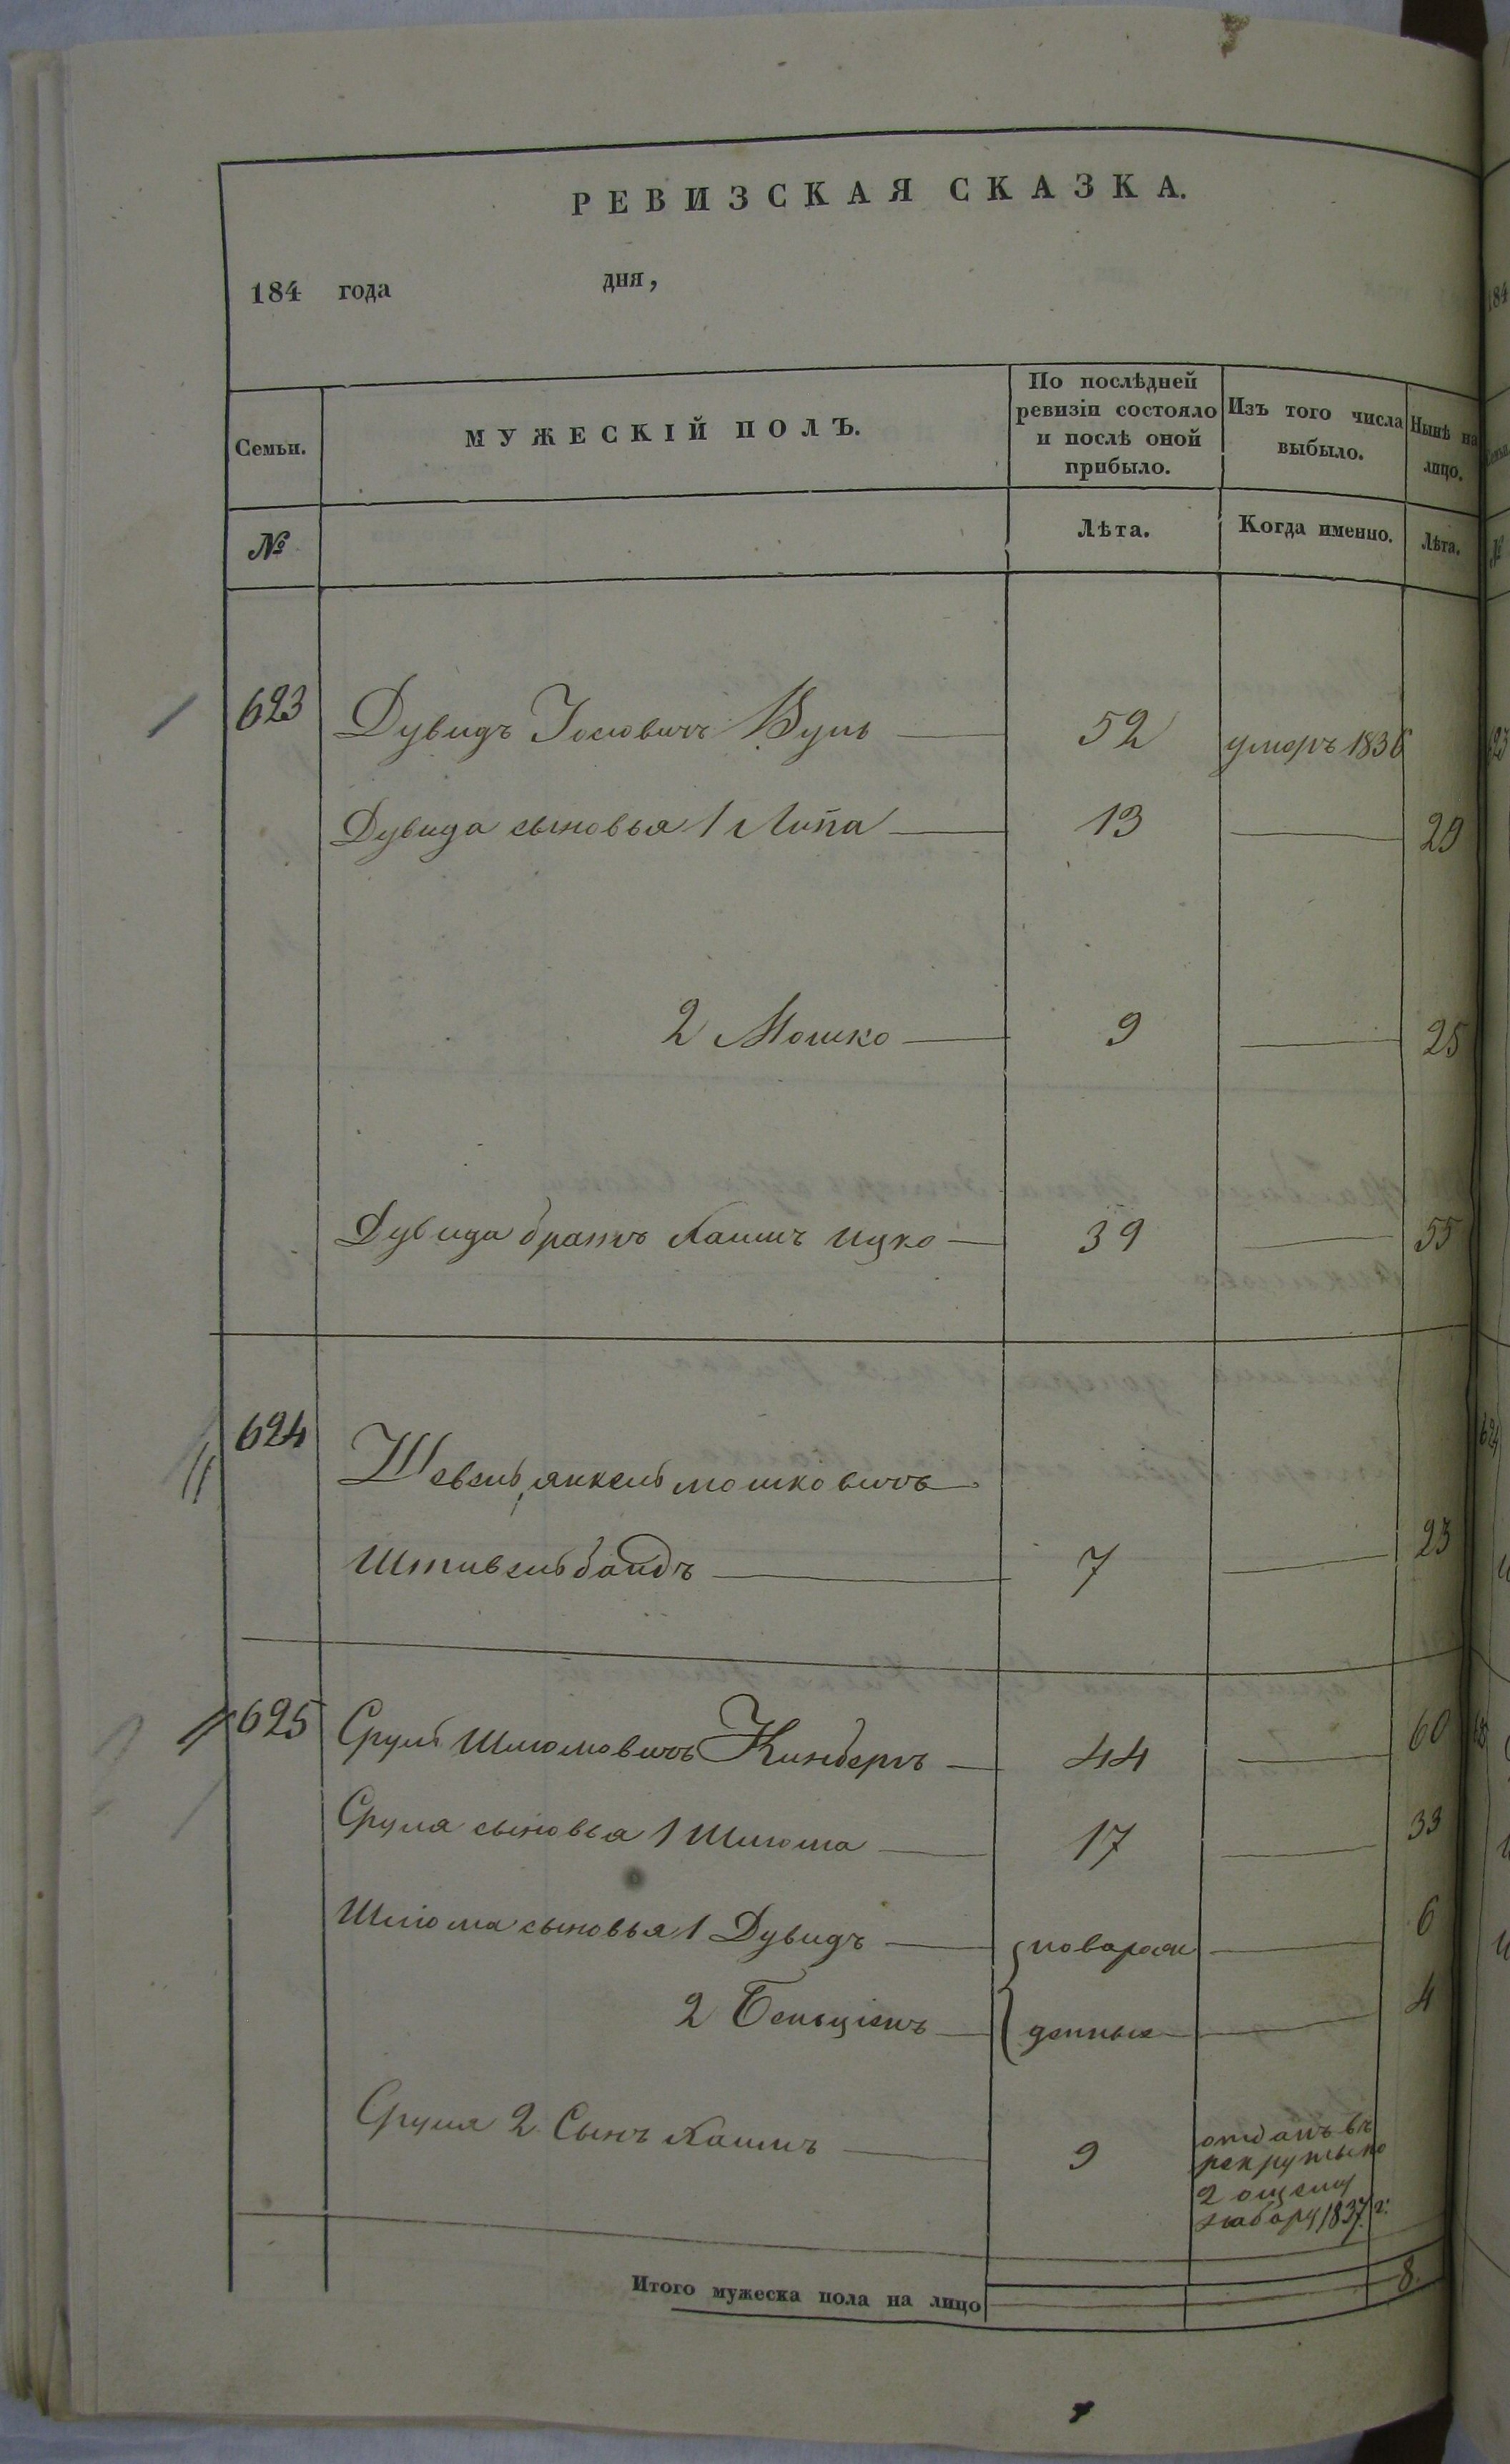 РЕВИЗСКАЯ СКАЗКА.
184 года дня,
Семьи. МУЖЕСКІЙ ПОЛЪ. По послѣдней ревизіи состояло и послѣ оной прибыло. Изъ того числа выбыло. Нынѣ на лицо.
№ Лѣта. Когда именно. Лѣта.
623 Дувидъ Іосіовичъ 52 умеръ 1836
Дувида сыновья 1 Липа 13 29
2 Мошко 9 25
Дувида братъ Хаимъ Ицко 39 55
624 Шевель, янкель мошковичъ
Штивельбандъ 7 23
625 Сруль Шліомовичъ Кинберъ 44 60
Сруля сыновья 1 Шліома 17 33
Шліома сыновья 1 Дувидъ новорож 6
2 Бенціенъ денные 4
Сруля 2 Сынъ Хаимъ 9 отданъ въ
рекруты по
2 общему
набору 1837 г:
Итого мужеска пола на лицо 8.